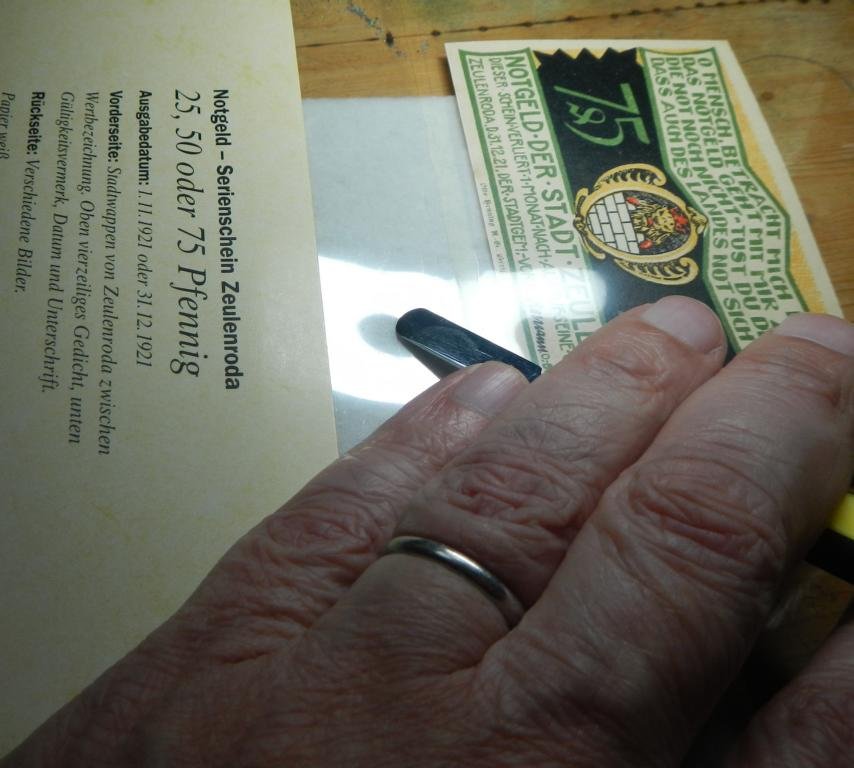 Notgeld – Serienschein Zeulenroda
25, 50 oder 75 Pfennig
Ausgabedatum: 1.11.1921 oder 31.12.1921
Vorderseite: Stadtwappen von Zeulenroda zwischen
Wertbezeichnung. Oben vierzeiliges Gedicht, unten
Gültigkeitsvermerk, Datum und Unterschrift.
Rückseite: Verschiedene Bilder.
Papier weiß
O MENSCH, BETRACHT MICH
DAS NOTGELD GEHT MIT MIR
DIE NOT NOCH NICHT- TUST DU
DASS AUCH DES LANDES NOT SICH
75
NOTGELD·DER·STADT·ZEUL
DIESER SCHEIN VERLIERT·1·MONAT·NACH
ZEULENRODA, D.31.12.21. DER·STADTGEM.